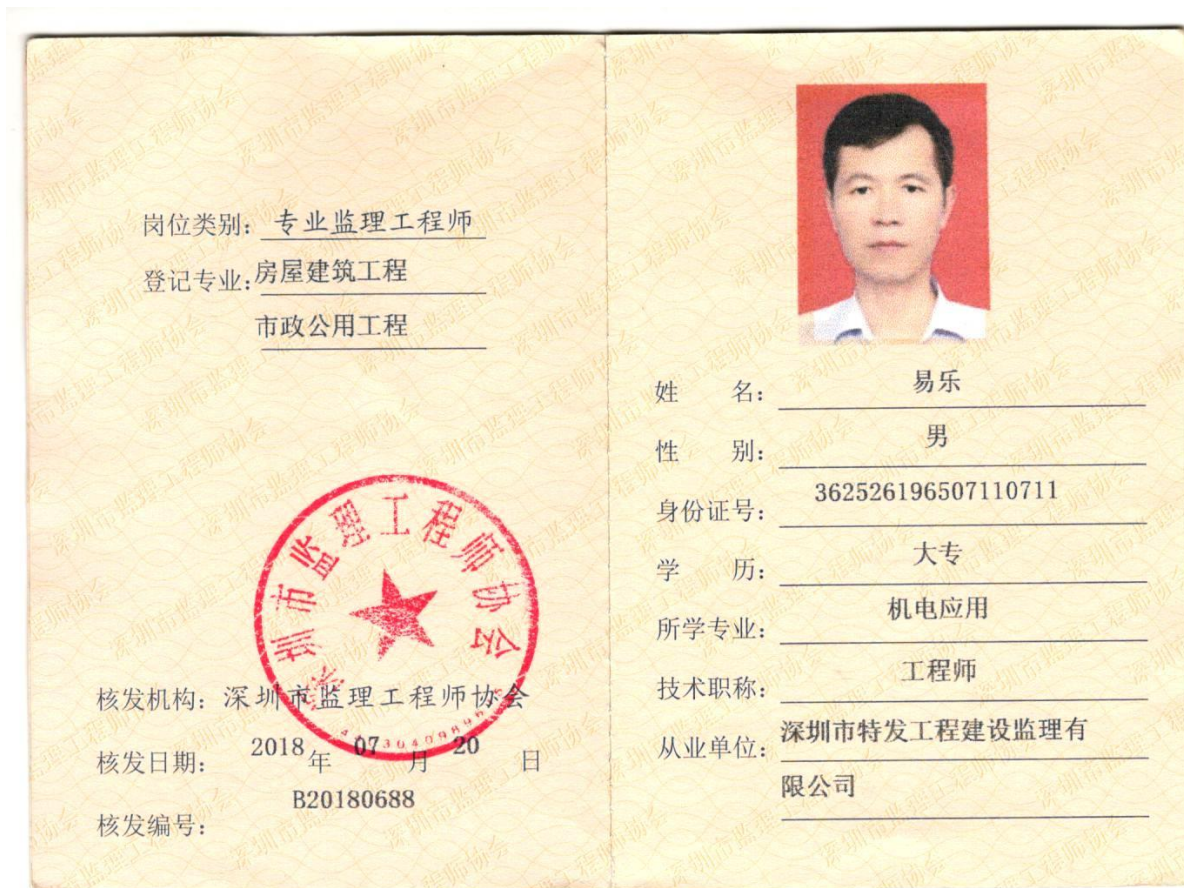 岗位类别：专业监理工程师
登记专业：房屋建筑工程
市政公用工程
深圳市监理工程师协会
核发机构：深圳市监理工程师协会
核发日期：2018年07月20日
核发编号：B20180688
姓 名：易乐
性 别：男
身份证号：362526196507110711
学 历：大专
所学专业：机电应用
技术职称：工程师
从业单位：深圳市特发工程建设监理有
限公司